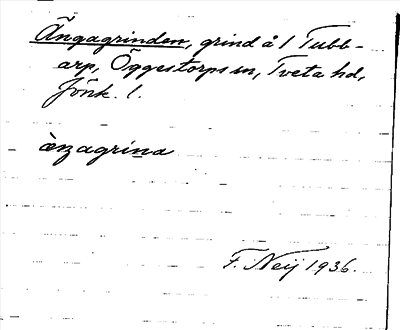 Ängagrinden, grind å 1 Tubb-
arp, Öggestorps sn, Tveta hd,
Jönk. l.
F. Neij 1936.